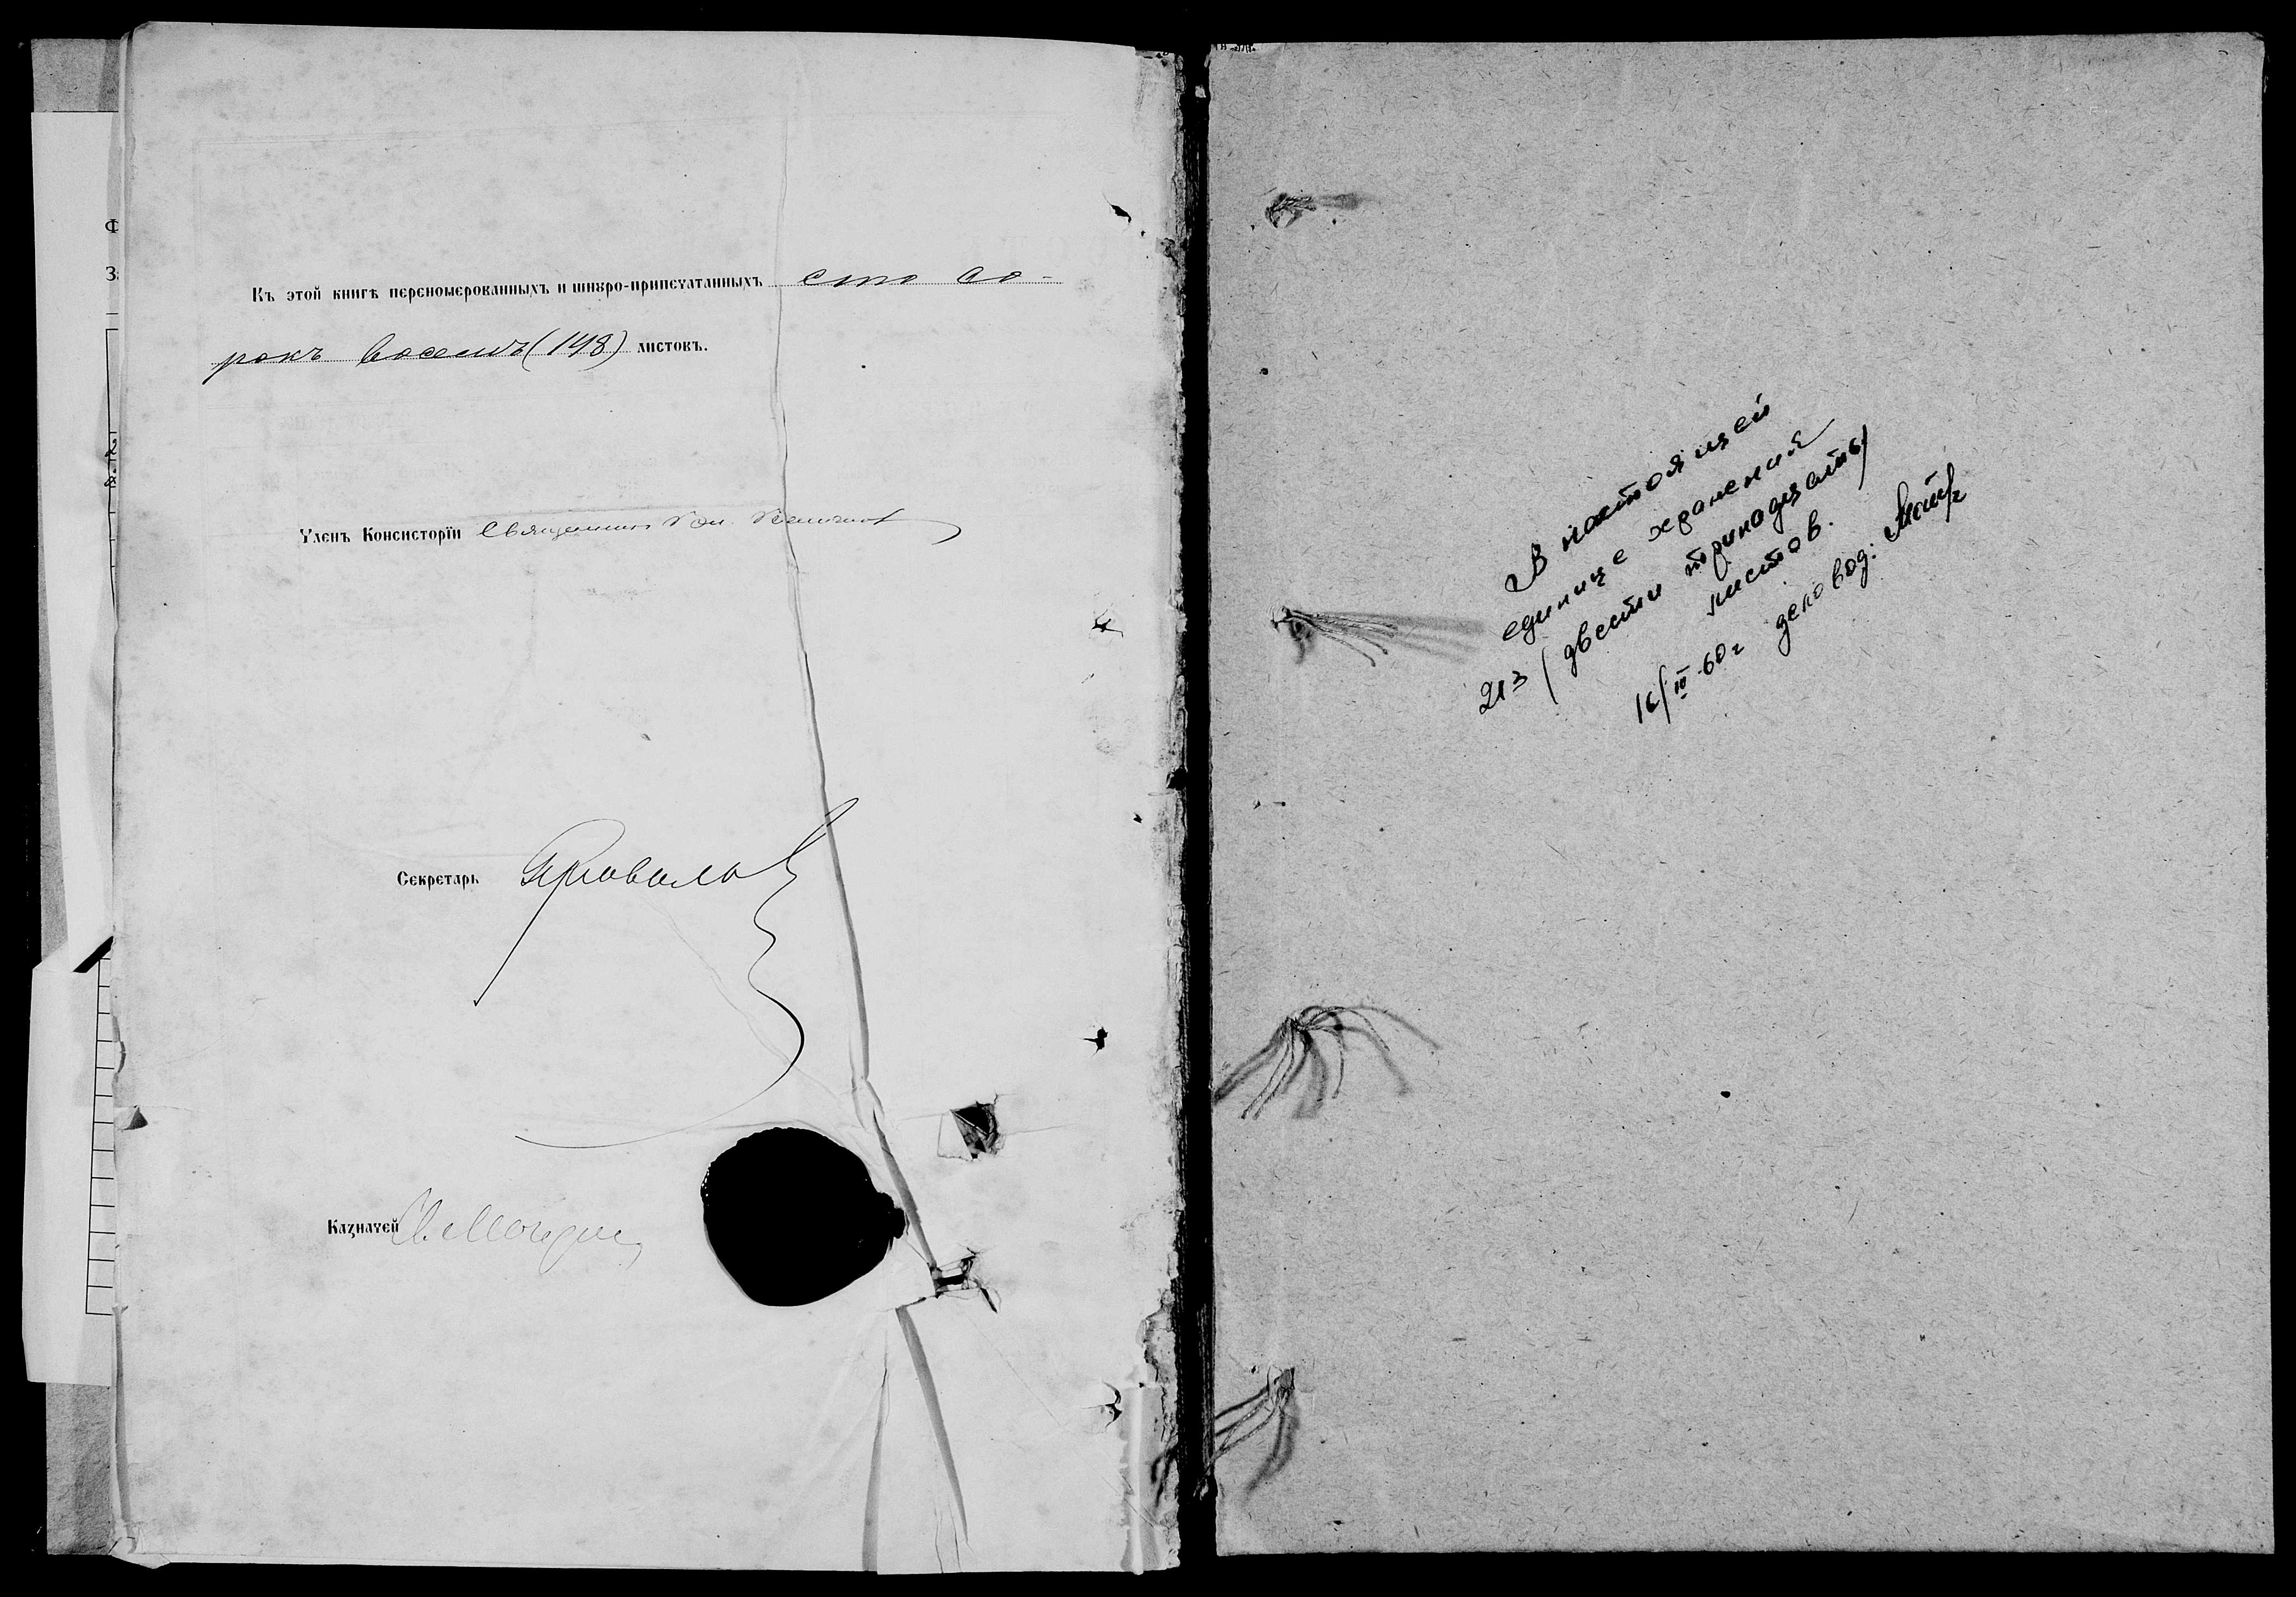 Къ этой книгѣ переномерованныхъ и шнуро-припечатанныхъ сто со-
рокъ восемь (148) листовъ.
Членъ Консисторіи Священникъ
Секретарь
Казначей
В настоящей
единице хранения
213 (двести тринадцать)
листов.
16/IV-60г деловод: